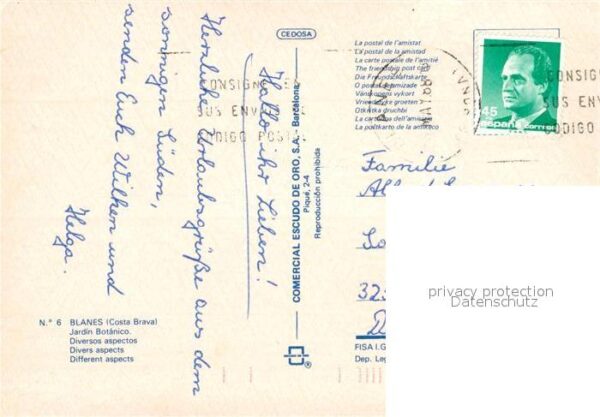 Hallo ihr Lieben!
Herzliche Urlaubsgrüße aus dem
sonnigen Süden,
senden Euch Wilhem und
Helga.
N.° 6 BLANES (Costa Brava)
Jardín Botánico.
Diversos aspectos
Divers aspects
Different aspects
CEDOSA
COMERCIAL ESCUDO DE ORO, S.A. - Barcelona
Piqué, 2-4
Reproducción prohibida
La postal de l'amistat
La postal de la amistad
La carte postale de l'amitié
The friendship post card
Die Freundschaftskarte
O postal da amizade
Vänskapens vykort
Vriendelyke groeten
Otkritka druchbi
La cartolina dell'amicizia
La poŝtkarto de la amikeco
CONSIGNE
SUS ENV
CODIGO POSTAL
MAY
CONSIGN
SUS ENV
CODIGO
45
españa correos
Familie
32
D
FISA I.G.
Dep. Leg
privacy protection
Datenschutz